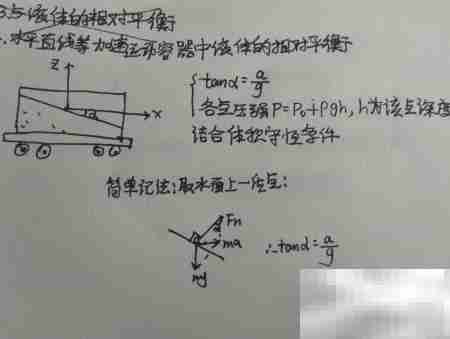 3.与液体的相对平衡
1.水平直线等加速运动容器中液体的相对平衡
Z
tanα=a/g
各点压强 P=P₀+ρgh, h为该点深度
α
x
结合体积守恒条件
简单记法:取水面上一质点:
Fn
α
ma
∴tanα=a/g
mg